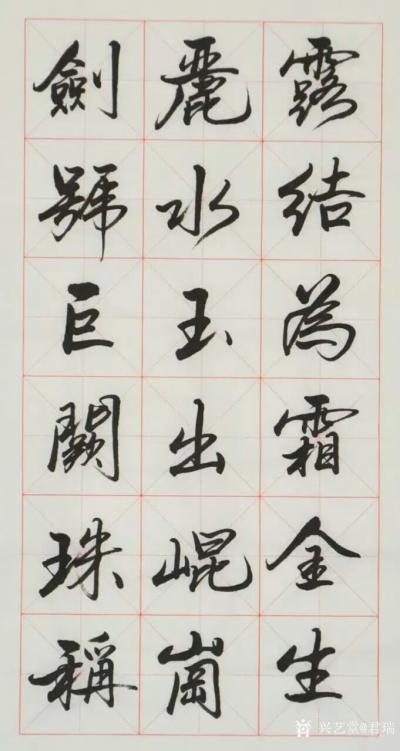 露結為霜金生
麗水玉出崐崗
劍號巨闕珠稱
兴艺堂@君瑞